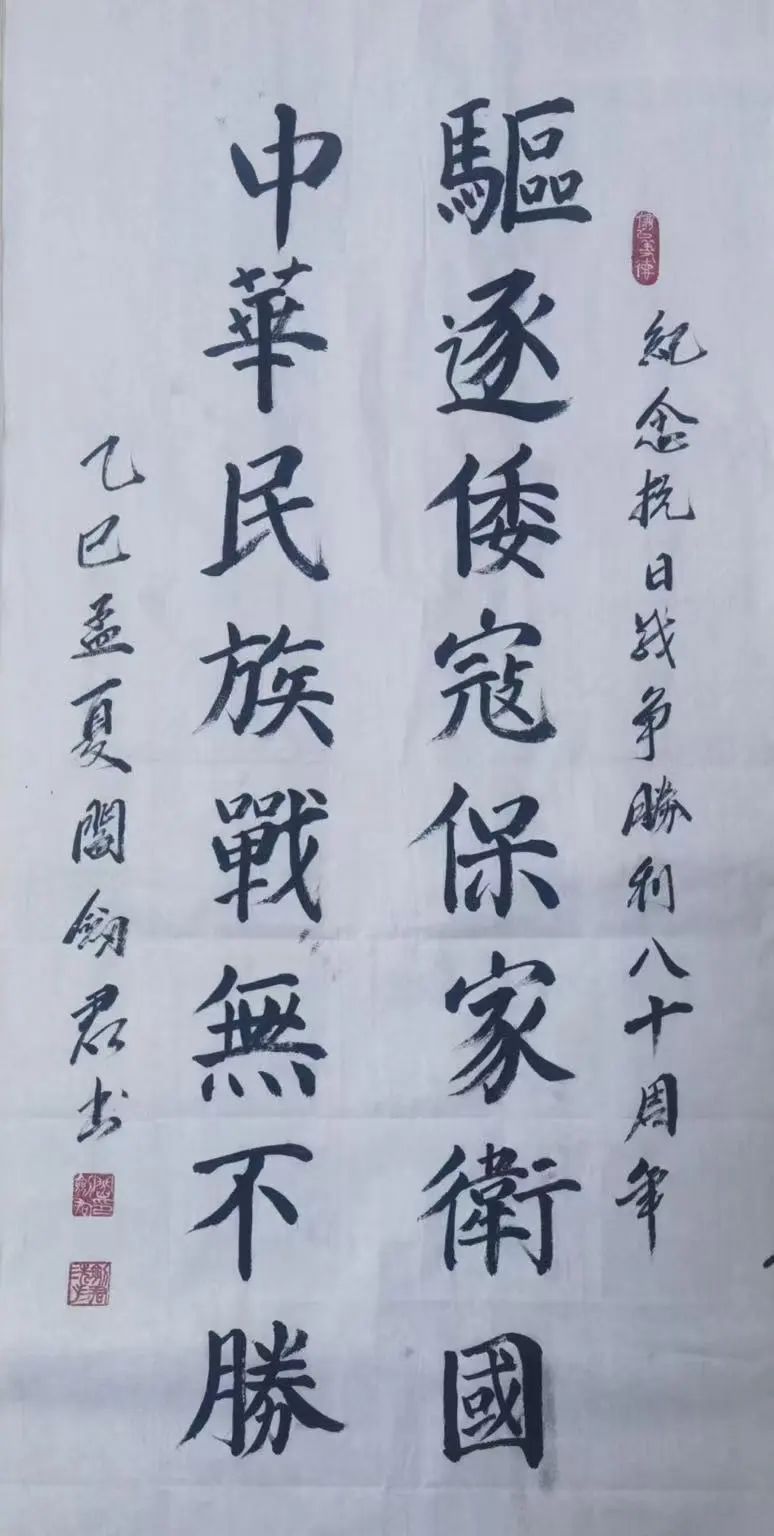 紀念抗日战争勝利八十周年
驅逐倭寇保家衛國
中華民族戰無不勝
乙巳孟夏閻劔君书